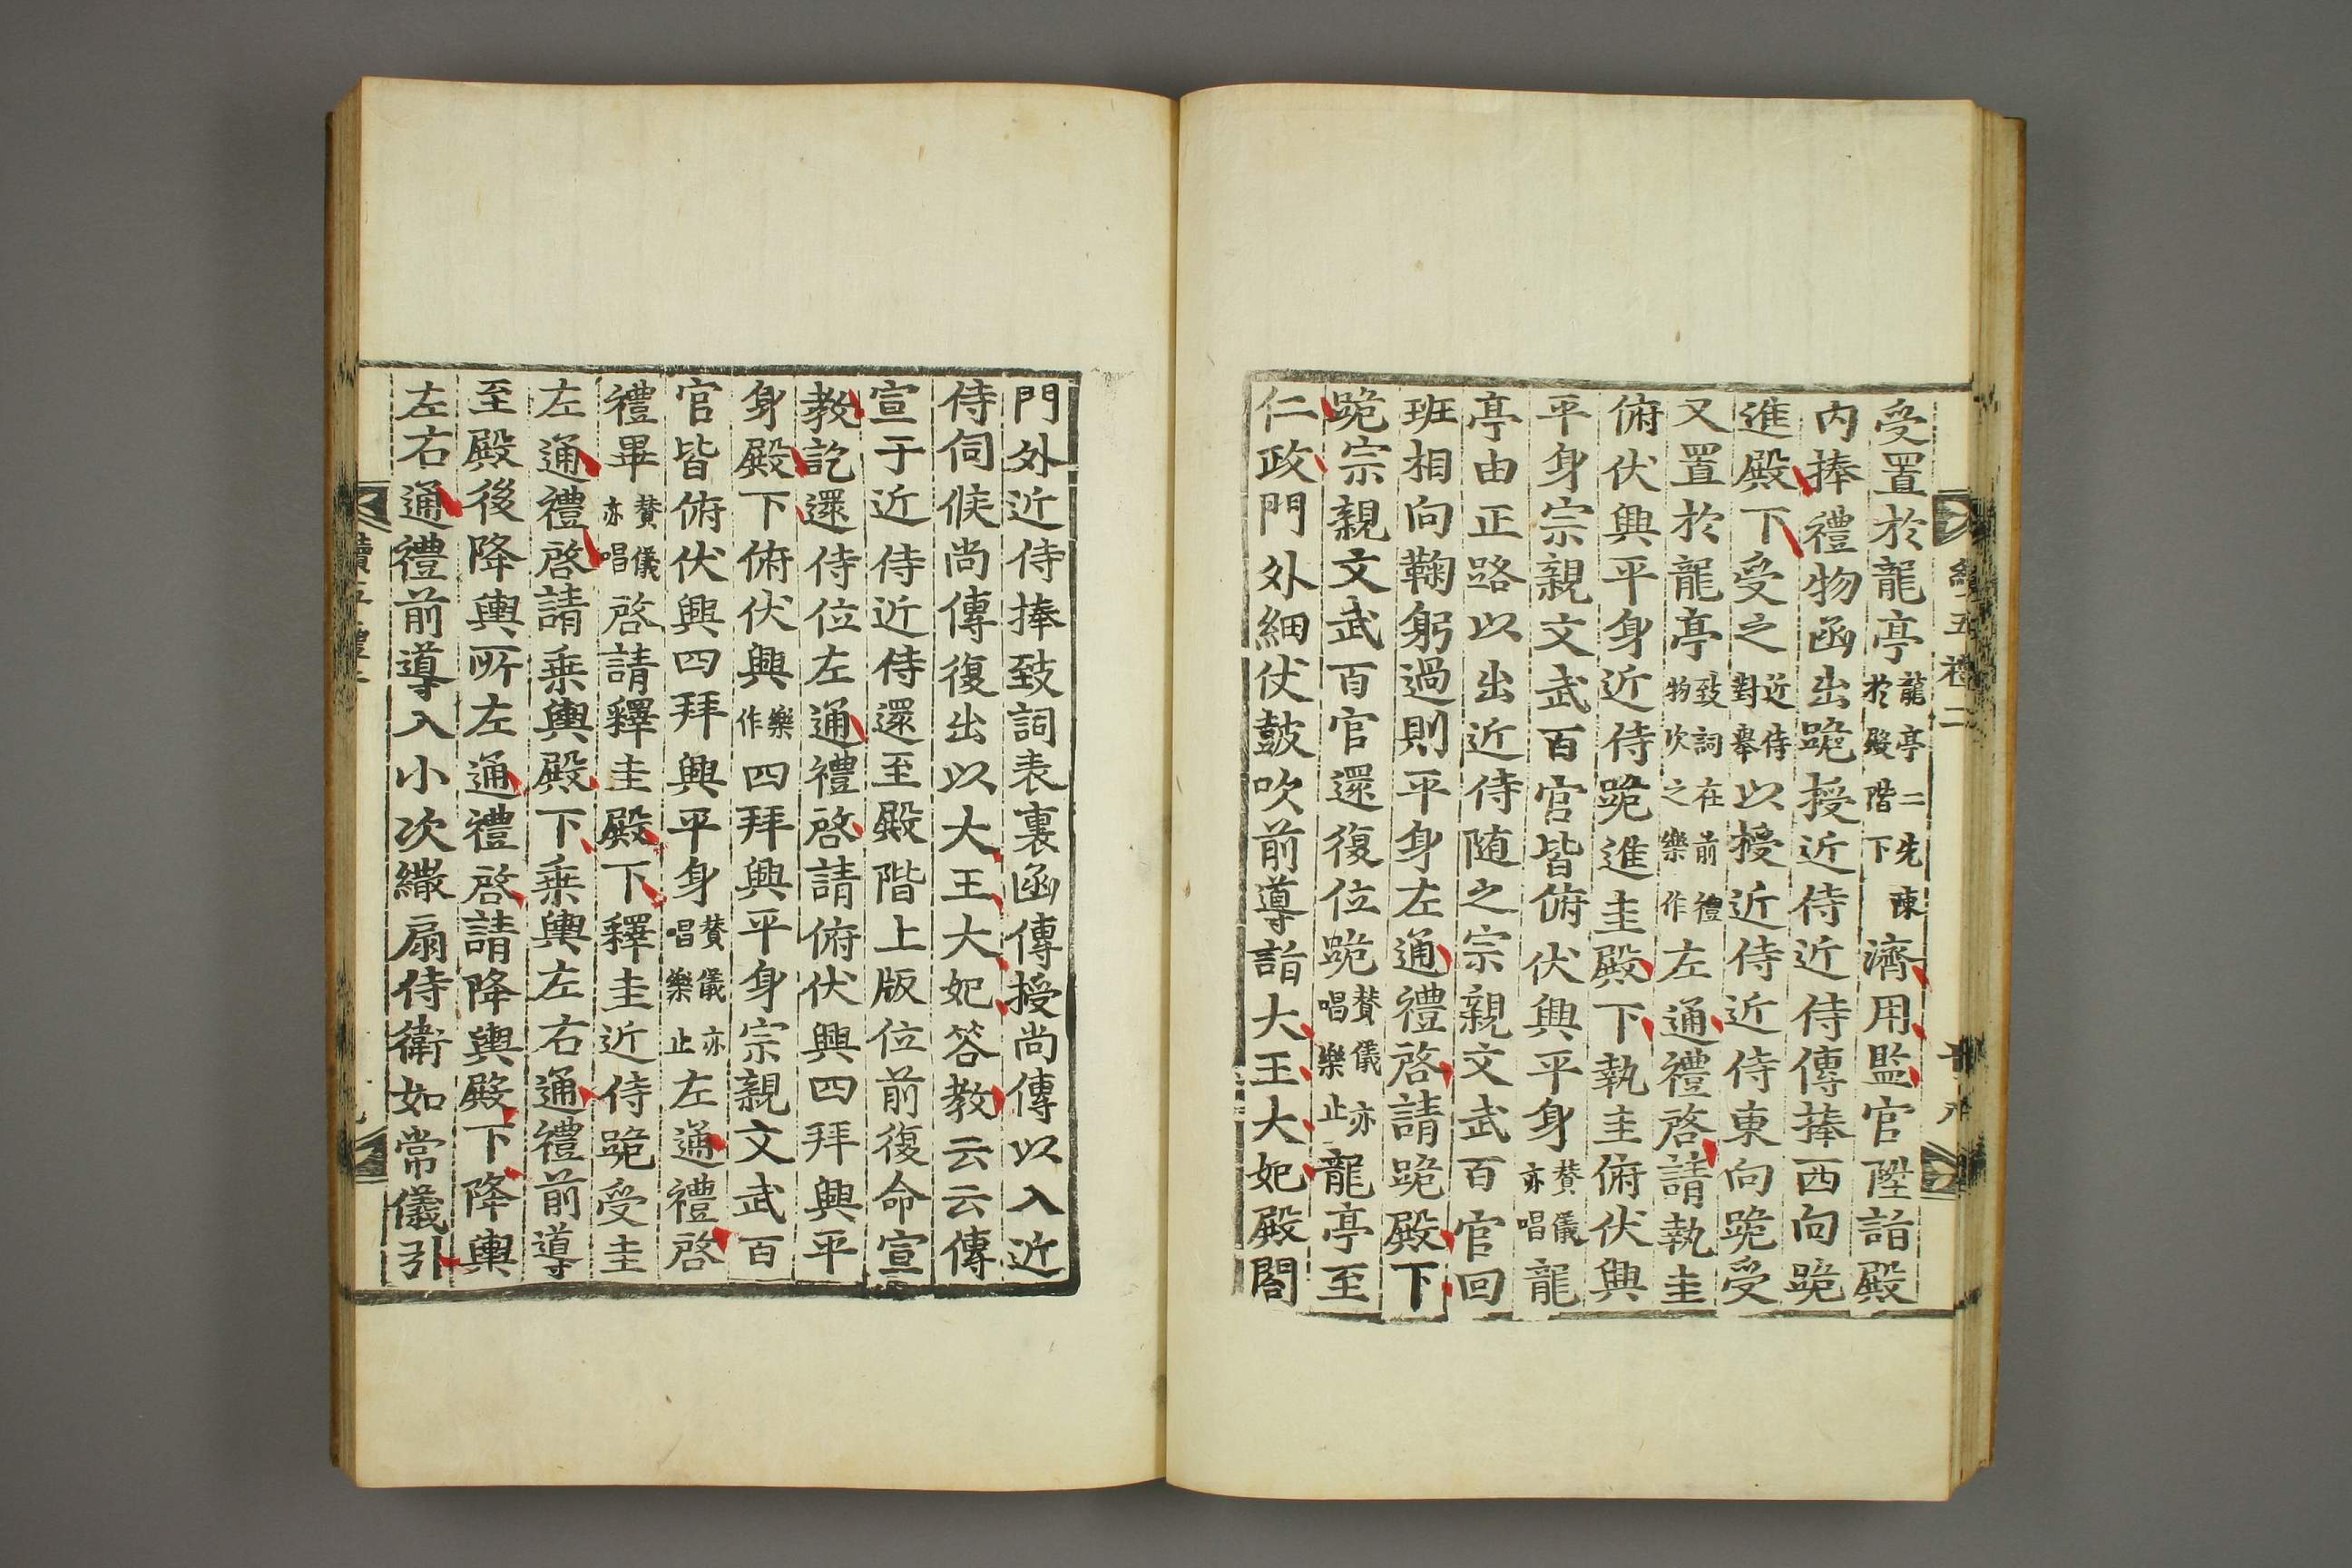 受置於龍亭龍亭二先陳於殿階下濟用監官陞詣殿
內捧禮物函出跪授近侍近侍傳捧西向跪
進殿下受之近侍對舉以授近侍近侍東向跪受
又置於龍亭致詞在前禮物次之樂作左通禮啓請執圭
俯伏興平身近侍跪進圭殿下執圭俯伏興
平身宗親文武百官皆俯伏興平身贊儀亦唱龍
亭由正路以出近侍隨之宗親文武百官回
班相向鞠躬過則平身左通禮啓請跪殿下
跪宗親文武百官還復位跪贊儀亦唱樂止龍亭至
仁政門外細仗鼓吹前導詣大王大妃殿閤
門外近侍捧致詞表裏函傳授尚傳以入近
侍伺候尚傳復出以大王大妃答教云云傳
宣于近侍近侍還至殿階上版位前復命宣
教訖還侍位左通禮啓請俯伏興四拜興平
身殿下俯伏興樂作四拜興平身宗親文武百
官皆俯伏興四拜興平身贊儀亦唱樂止左通禮啓
禮畢贊儀亦唱啓請釋圭殿下釋圭近侍跪受圭
左通禮啓請乘輿殿下乘輿左右通禮前導
至殿後降輿所左通禮啓請降輿殿下降輿
左右通禮前導入小次繖扇侍衛如常儀引